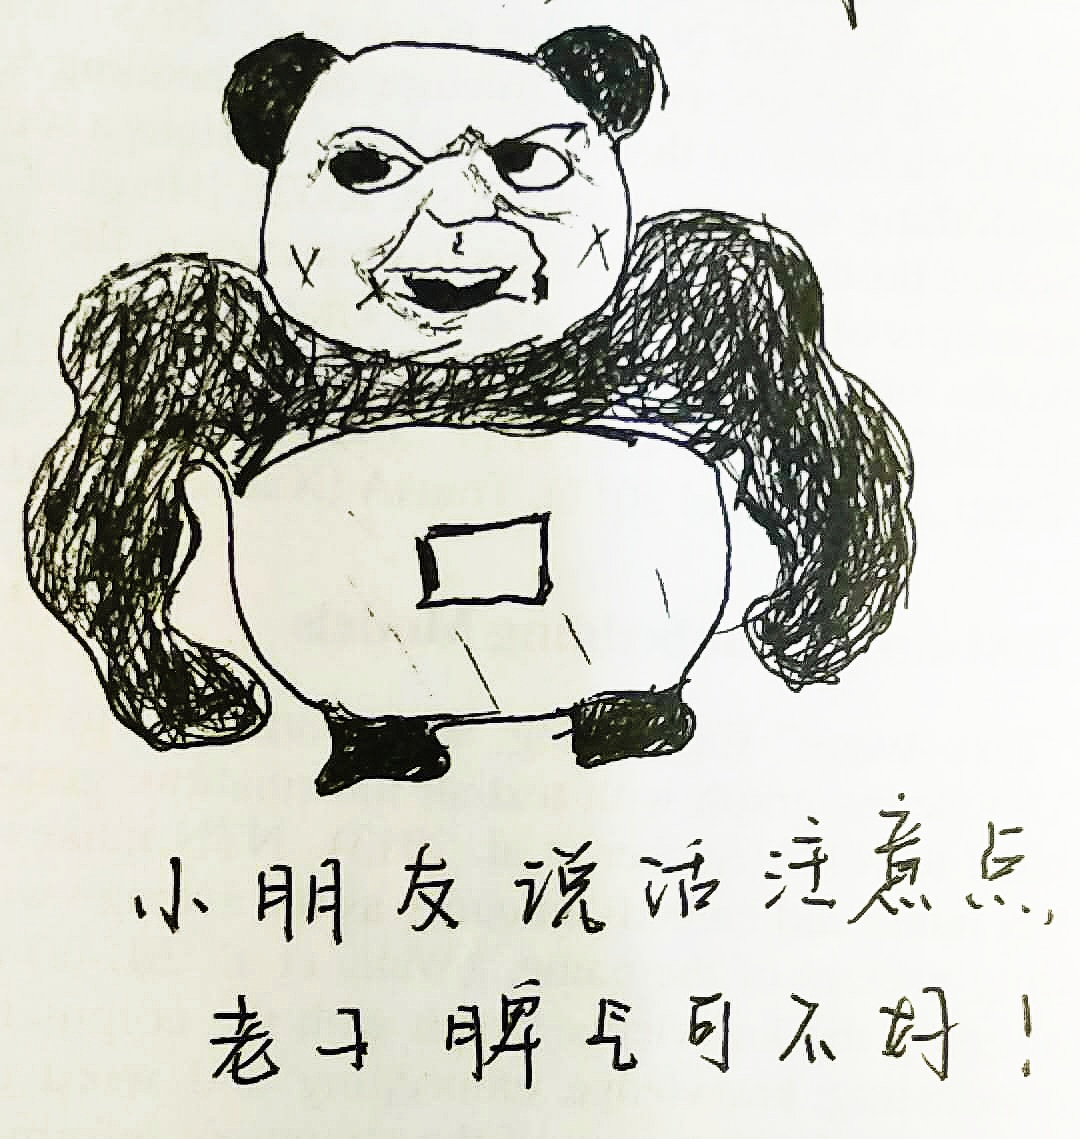 小朋友说话注意点,
老子脾气可不好!